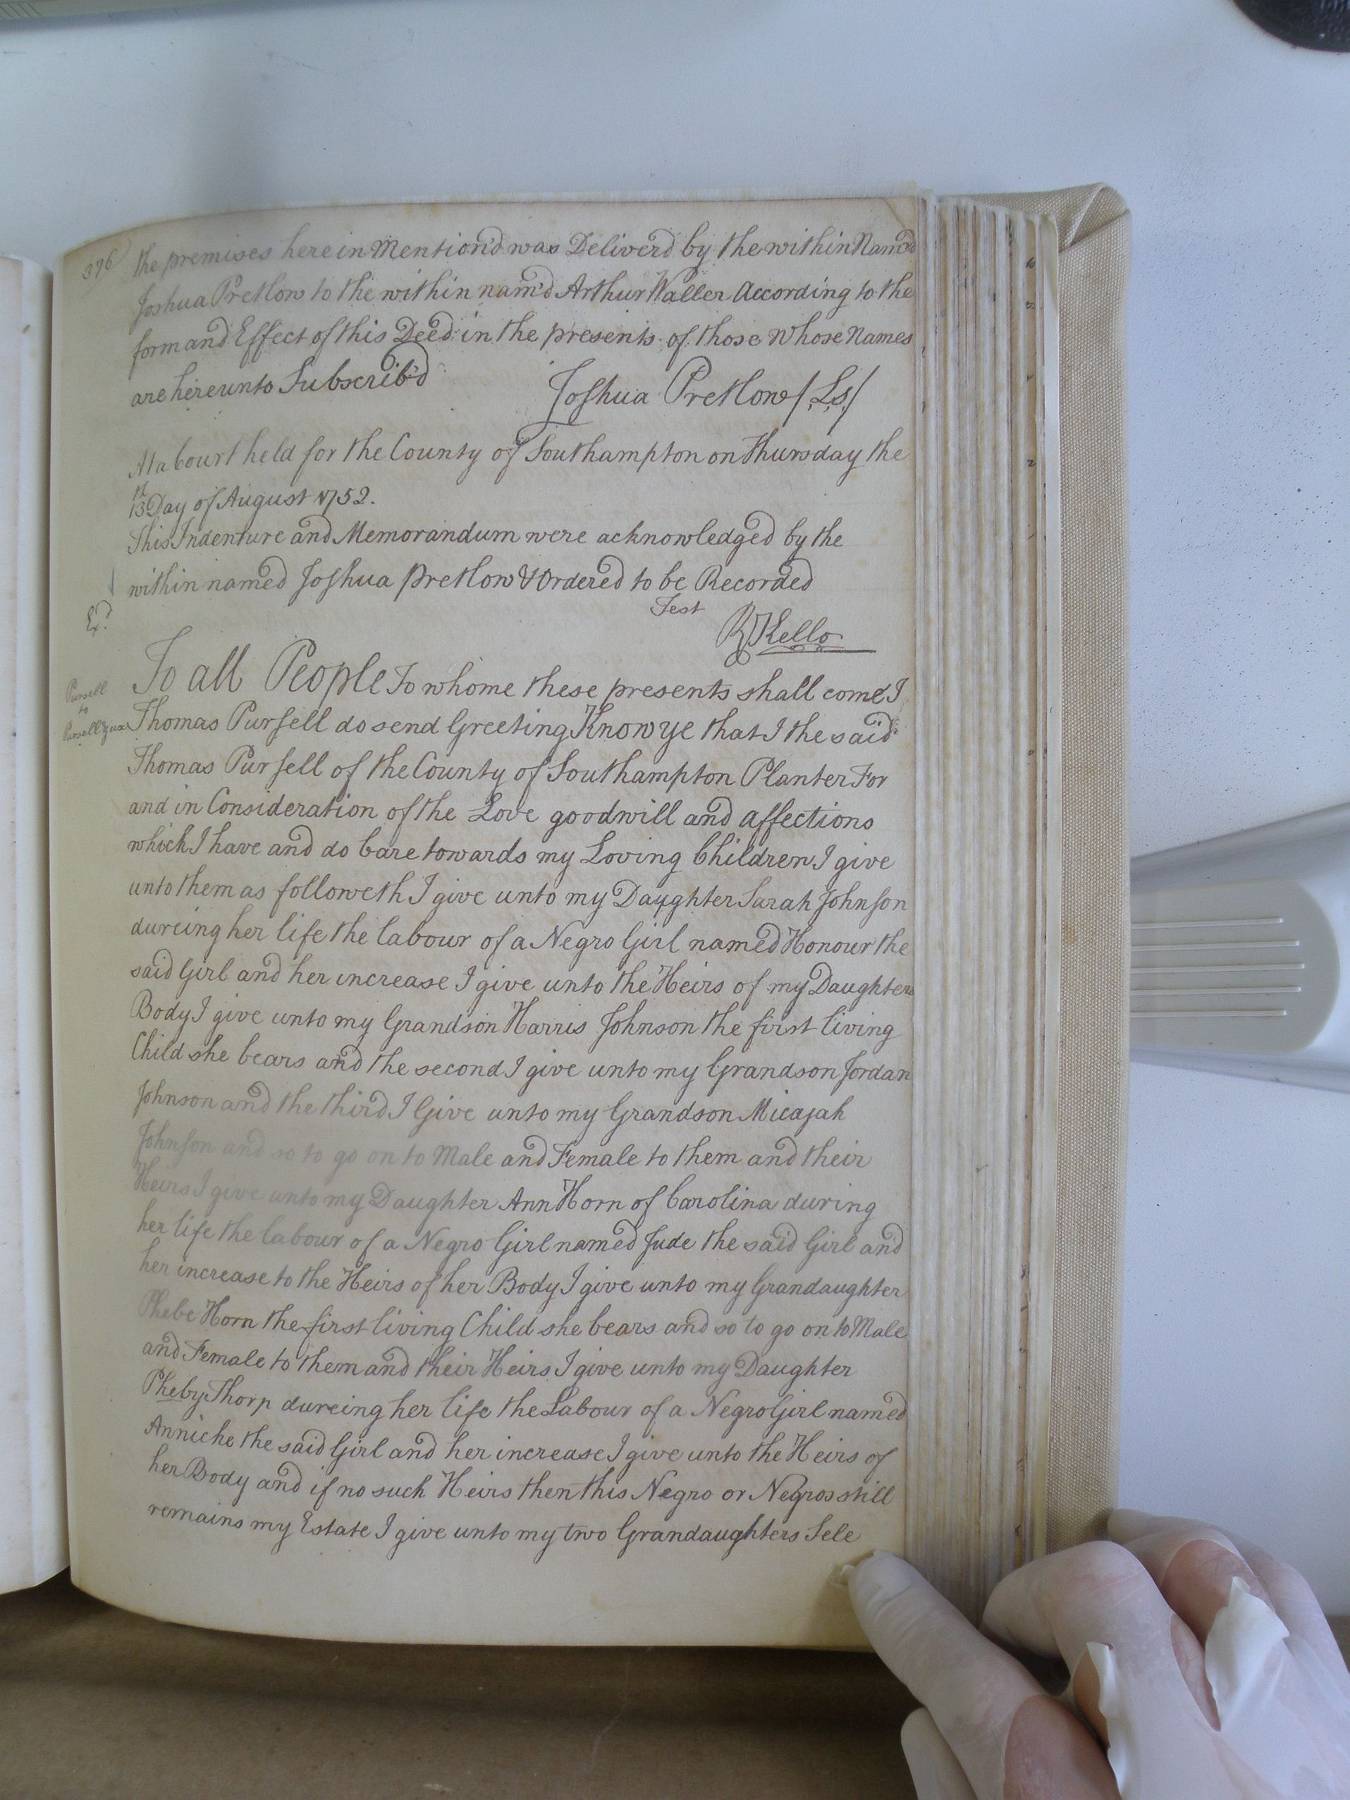 396
the premises herein Mention'd was Deliver'd by the within Nam'd
Joshua Pretlow to the within nam'd Arthur Waller According to the
form and Effect of this Deed in the presents of those Whose Names
are hereunto Subscrib'd Joshua Pretlow /Ls/
At a Court held for the County of Southampton on Thursday the
13th Day of August 1752.
This Indenture and Memorandum were acknowledged by the
within named Joshua Pretlow & Ordered to be Recorded
Test
Exd
R Kello
To all People To whome these presents shall come I
Pursell
to
Pursell
Thomas Pursell do send Greeting Know ye that I the said
Thomas Pursell of the County of Southampton Planter For
and in Consideration of the Love goodwill and affections
which I have and do bare towards my Loving Children I give
unto them as followeth I give unto my Daughter Sarah Johnson
dureing her life the labour of a Negro Girl named Honour the
said Girl and her increase I give unto the Heirs of my Daughters
Body I give unto my Grandson Harris Johnson the first living
Child she bears and the second I give unto my Grandson Jordan
Johnson and the third I Give unto my Grandson Micajah
Johnson and so to go on to Male and Female to them and their
Heirs I give unto my Daughter Ann Horn of Carolina during
her life the labour of a Negro Girl named Jude the said Girl and
her increase to the Heirs of her Body I give unto my Grandaughter
Phebe Horn the first living Child she bears and so to go on to Male
and Female to them and their Heirs I give unto my Daughter
Pheby Thorp dureing her life the Labour of a Negro Girl named
Anniche the said Girl and her increase I give unto the Heirs of
her Body and if no such Heirs then this Negro or Negros still
remains my Estate I give unto my two Grandaughters Sele